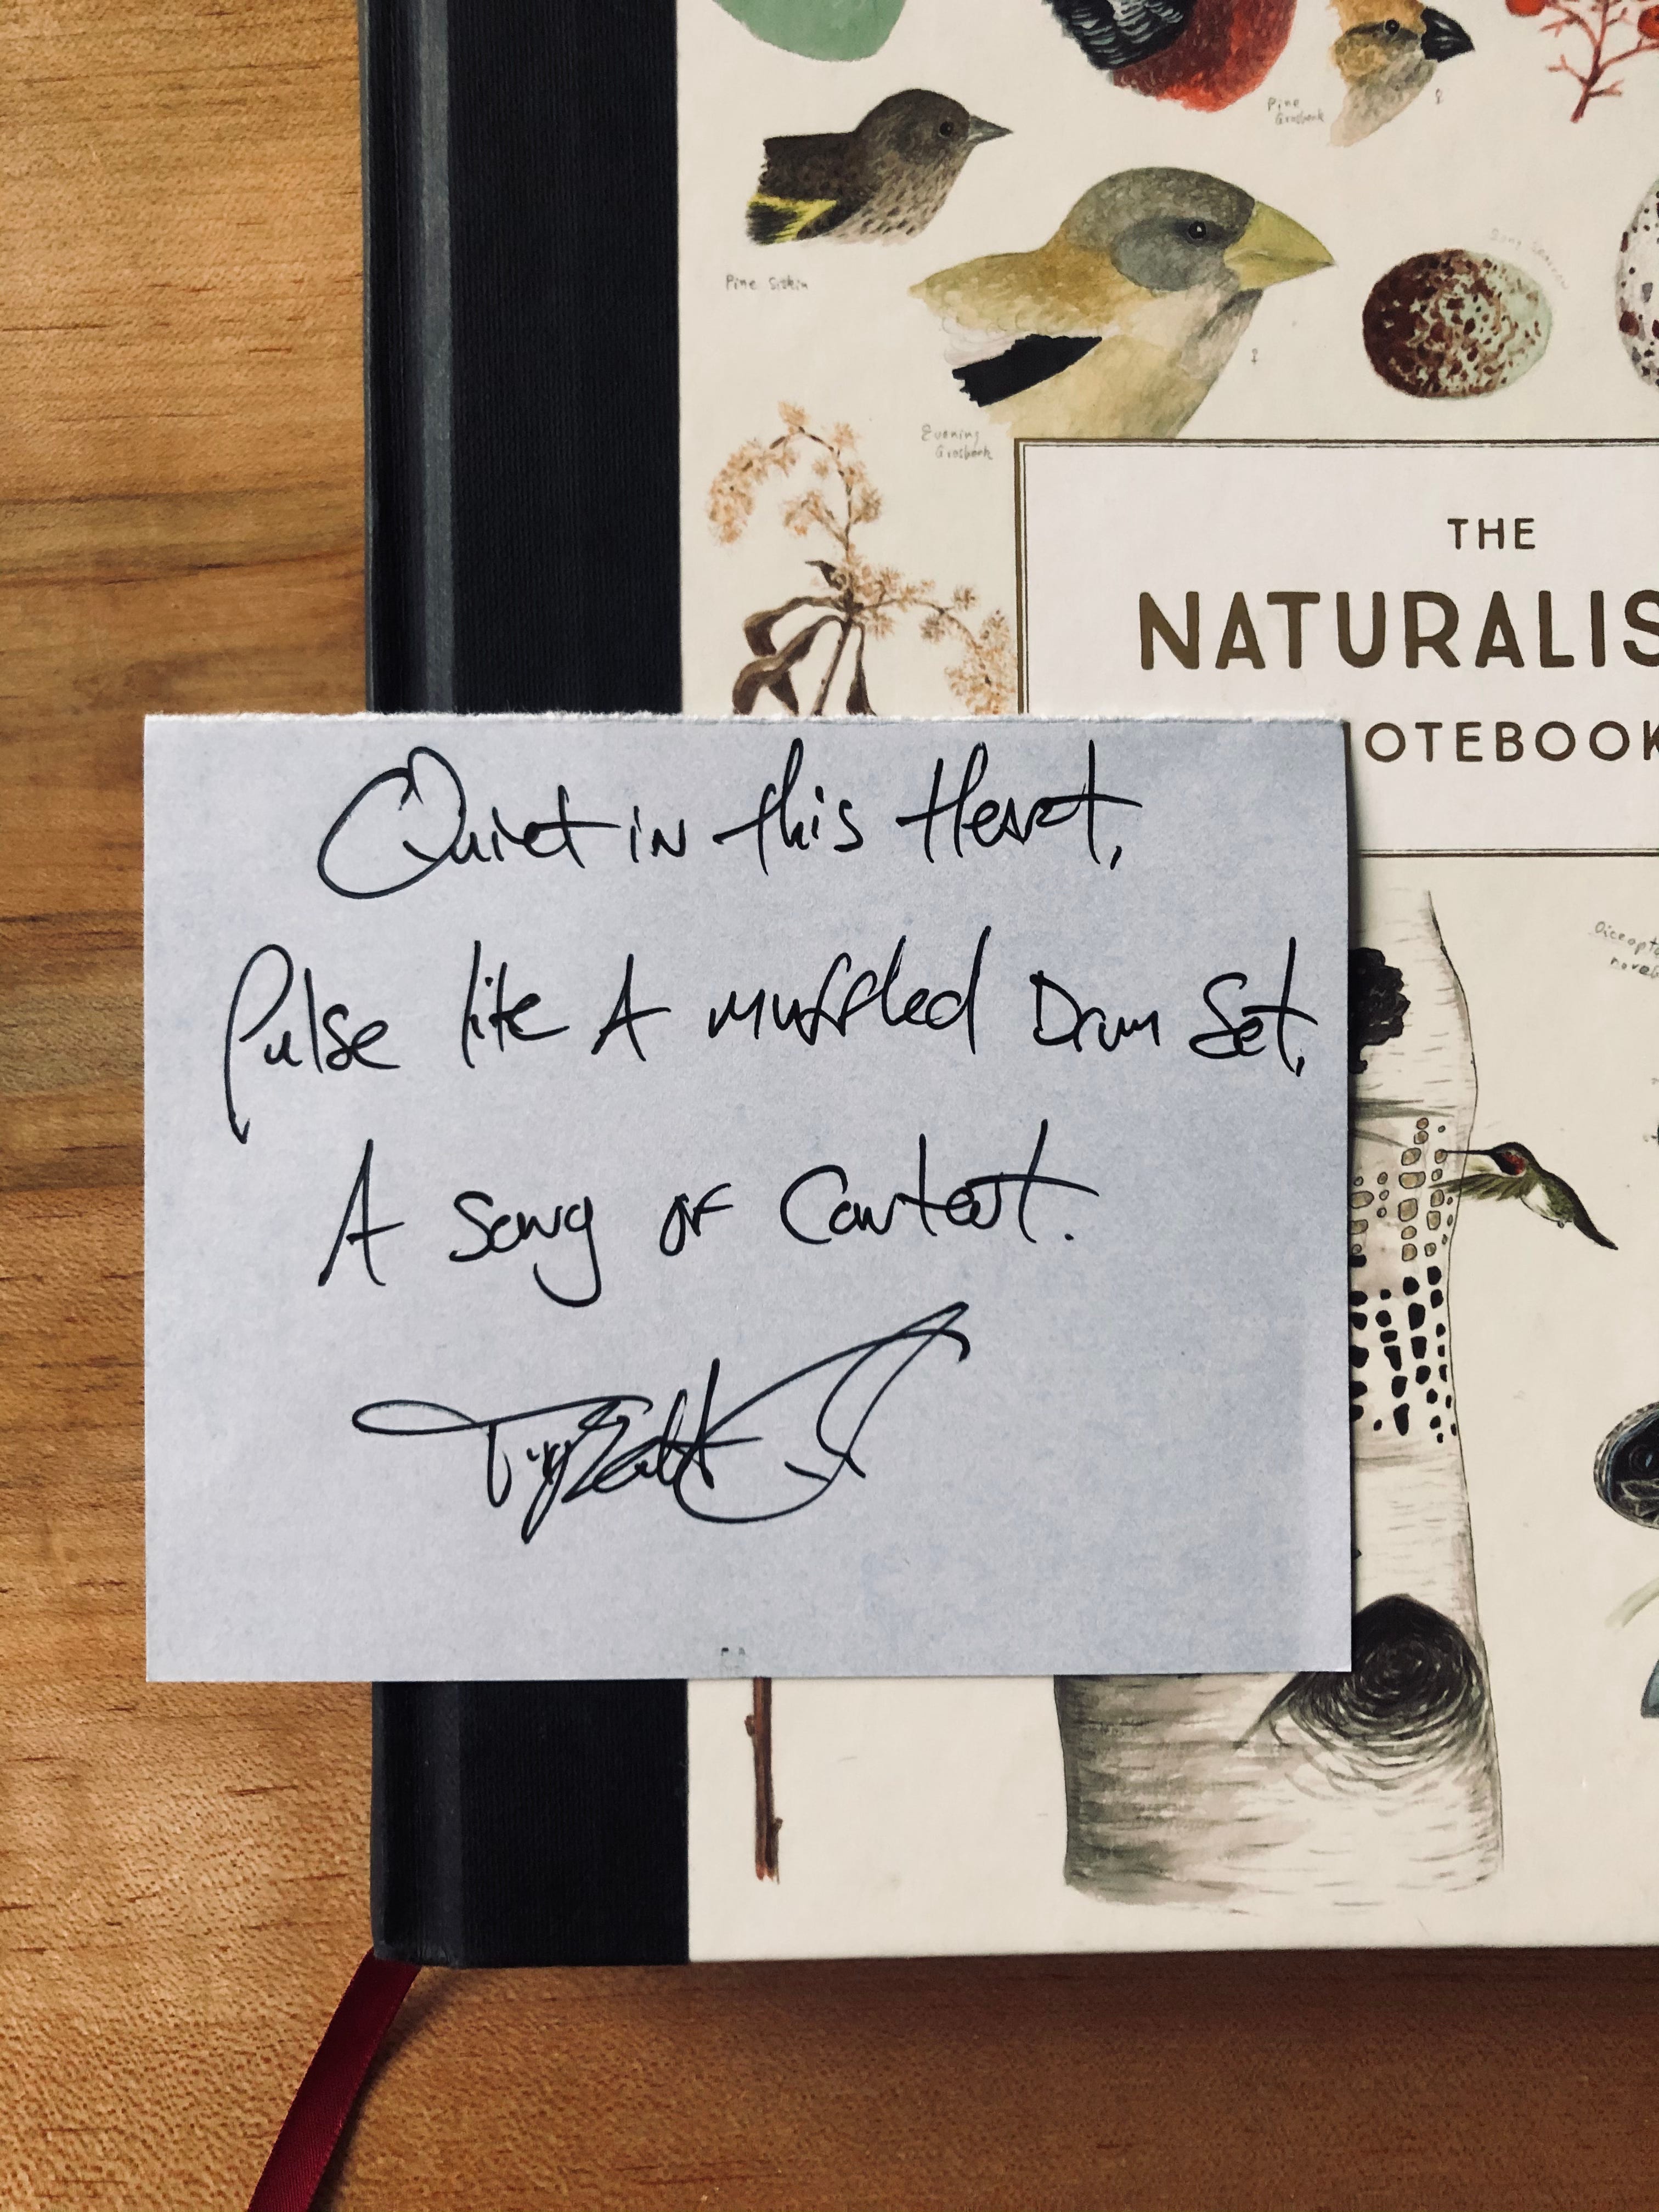 Pine
Grosbeak
♀
Pine Siskin
♀
Evening
Grosbeak
THE
NATURALIS
OTEBOOK
Quiet in this Heart,
Pulse like A muffled Drum Set,
A song of Content.